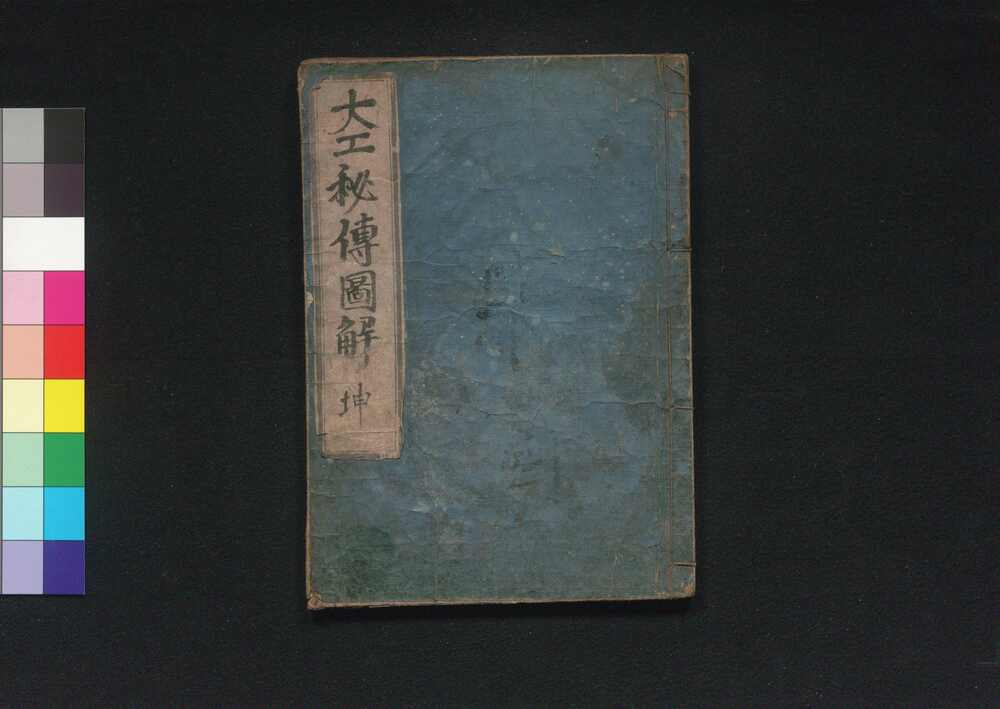 大工秘傳圖解 坤